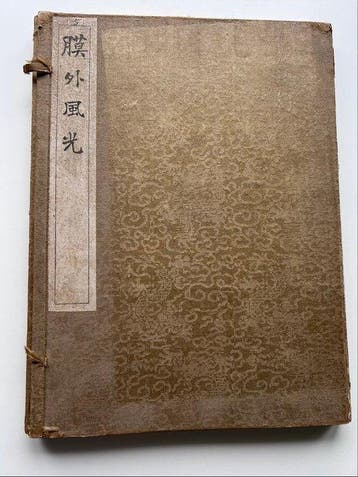 膜外風光